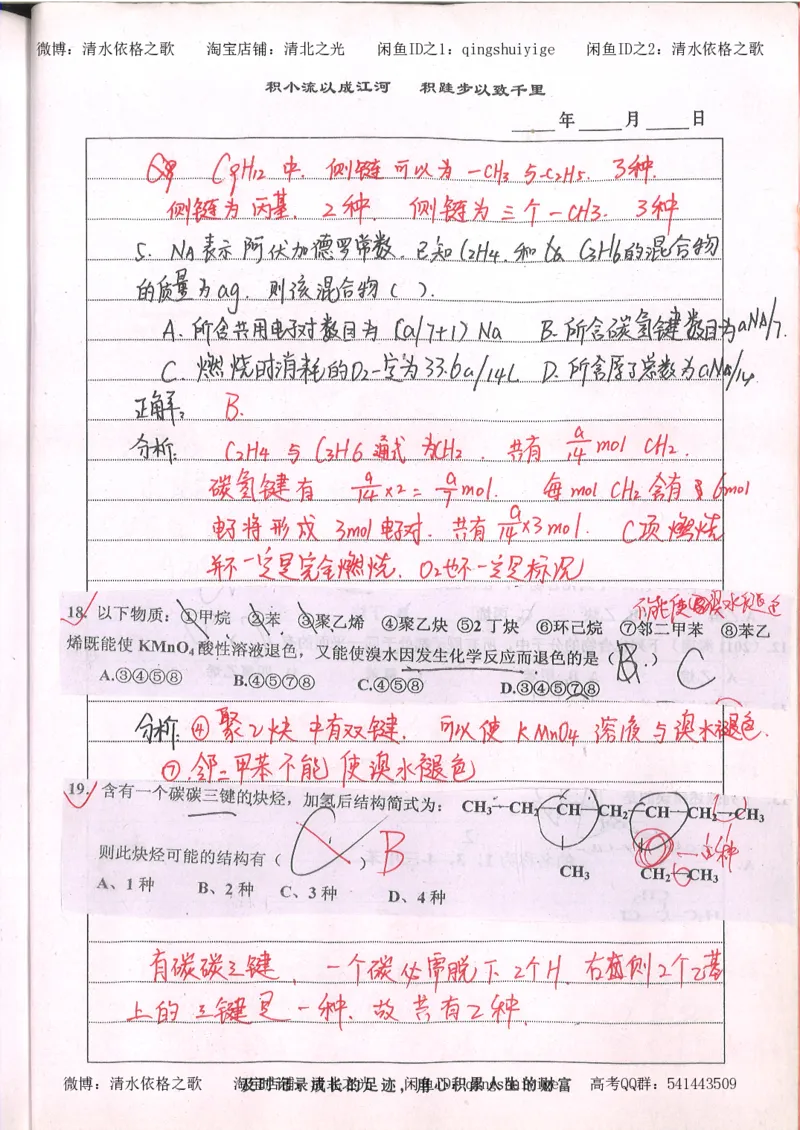 微博：清水依格之歌 淘宝店铺：清北之光 闲鱼ID之1：qingshuiyige 闲鱼ID之2：清水依格之歌
积小流以成江河 积跬步以致千里
年 月 日
C9H12 中，侧链可以为 -CH3 与 -C2H5. 3种.
侧链为丙基. 2种. 侧链为三个 -CH3. 3种
5. NA表示阿伏加德罗常数. 已知C2H4. 和 C3H6的混合物
的质量为ag. 则该混合物（ ）.
A. 所含共用电子对数目为（a/7+1）Na B. 所含碳氢键数目为aNA/7.
C. 燃烧时消耗的O2一定为33.6a/14L D. 所含原子总数为aNa/14.
正解： B.
分析: C2H4 与 C3H6 通式为CH2. 共有 a/14 mol CH2.
碳氢键有 a/14 ×2 = a/7 mol. 每mol CH2 含有 6mol
电子将形成 3mol电子对. 共有 a/14 ×3 mol. C项燃烧
并不一定是完全燃烧. O2也不一定是标况
不能使溴水褪色
18. 以下物质：①甲烷 ②苯 ③聚乙烯 ④聚乙炔 ⑤2丁炔 ⑥环己烷 ⑦邻二甲苯 ⑧苯乙
烯既能使 KMnO4 酸性溶液退色，又能使溴水因发生化学反应而退色的是（ B ） C
A.③④⑤⑧ B.④⑤⑦⑧ C.④⑤⑧ D.③④⑤⑦⑧
分析: ④聚乙炔中有双键. 可以使 KMnO4 溶液与溴水褪色.
⑦.邻二甲苯不能使溴水褪色
19. 含有一个碳碳三键的炔烃，加氢后结构简式为： CH3—CH2—CH—CH2—CH—CH2—CH3
一种
则此炔烃可能的结构有（ C ） B
CH3 CH2—CH3
A、1种 B、2种 C、3种 D、4种
有碳碳三键, 一个碳必需脱下2个H. 右侧2个乙基
上的三键是一种. 故共有2种.
微博：清水依格之歌 淘宝店铺：清北之光 闲鱼ID之1：qingshuiyige 高考QQ群：541443509
及时记录成长的足迹，用心积累人生的财富